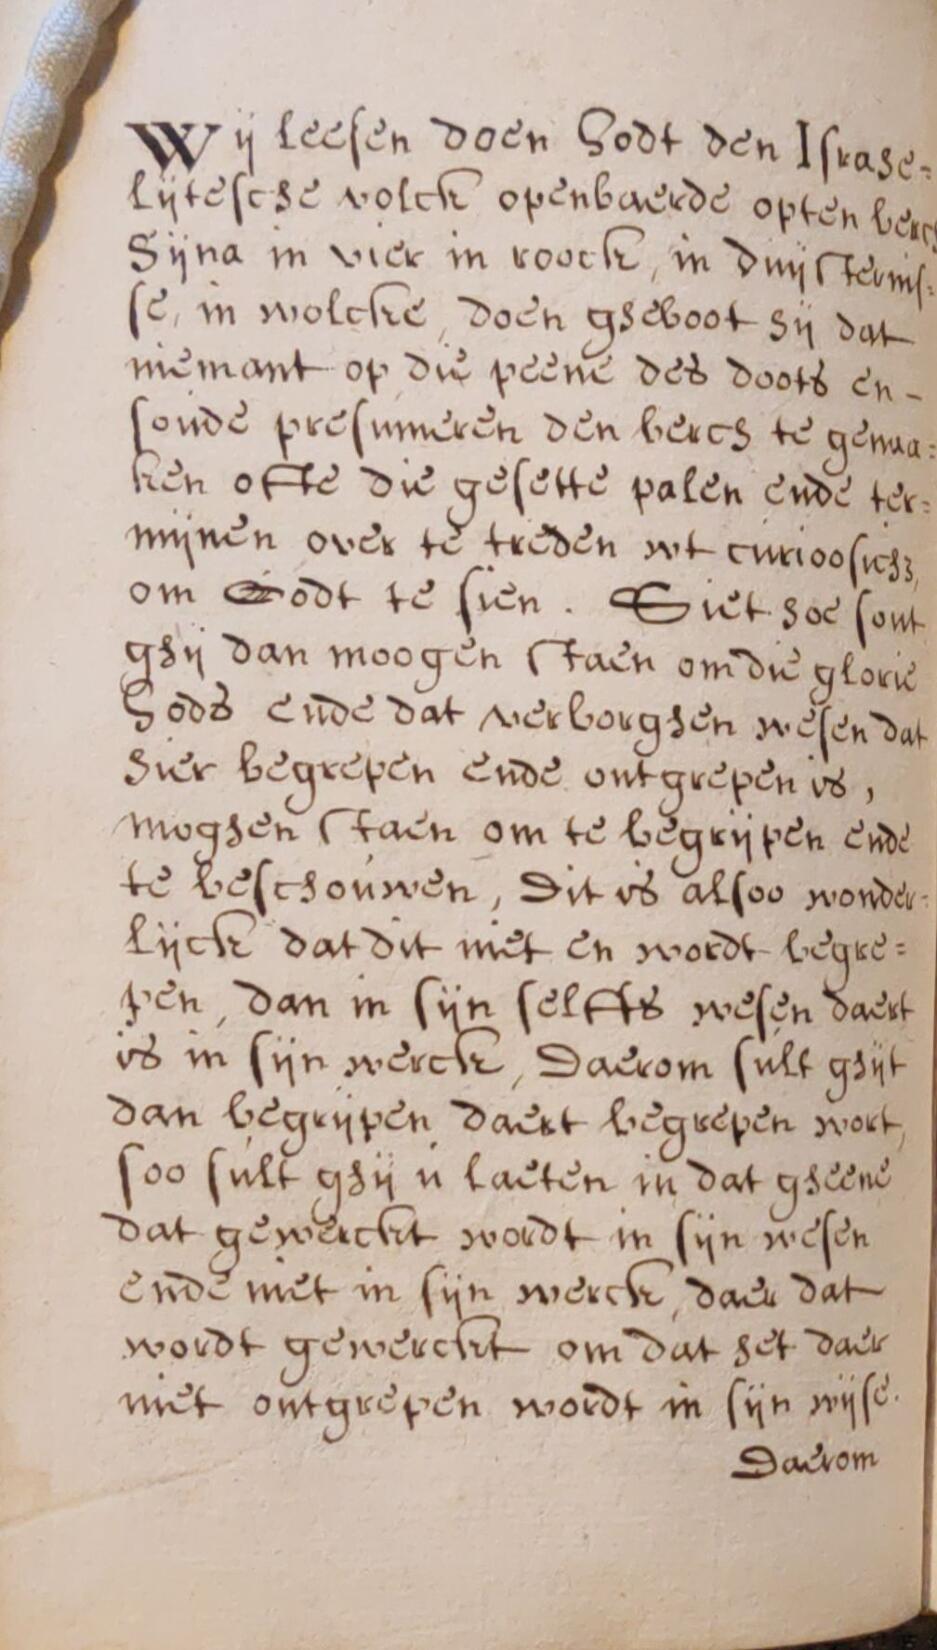 Wij leesen doen Godt den Israhe=
lijtesche volck openbaerde opten berch
Sijna in vier in roock, in duijsternis=
se, in wolcke, doen gheboot hij dat
niemant op die peene des doots en-
soude presumeren den berch te genaa=
ken ofte die gesette palen ende ter=
mijnen over te treden wt curioosich3,
om Godt te sien. Siet hoe sout
ghij dan moogen staen om die glorie
Gods ende dat verborghen wesen dat
hier begrepen ende ontgrepen is,
moghen staen om te begrijpen ende
te beschouwen, Dit is alsoo wonder=
lijck dat dit niet en wordt begre=
pen, dan in sijn selffs wesen daert
is in sijn werck, Daerom sult ghijt
dan begrijpen daert begrepen wort,
soo sult ghij u laeten in dat gheene
dat gewerckt wordt in sijn wesen
ende niet in sijn werck, daer dat
wordt gewerckt om dat het daer
niet ontgrepen wordt in sijn wijse.
Daerom